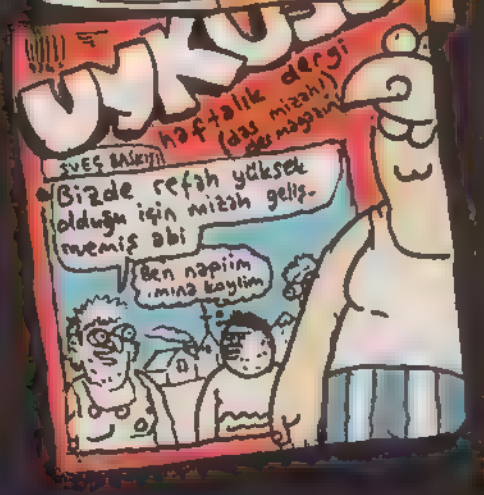 UYKUSUZ
haftalık dergi
(das mizahi)
der magazin
İSVEÇ BASKISI
Bizde refah yüksek
olduğu için mizah geliş-
memiş abi
Ben napiim
mına koyiim